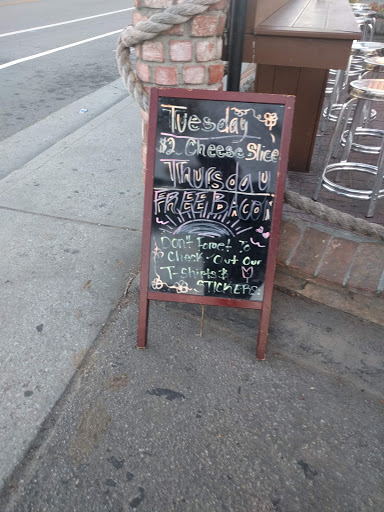 Tuesday
$2 Cheese Slice
Thursday
FREE BACON
Don't Forget To
Check Out Our
T-Shirts &
STICKERS